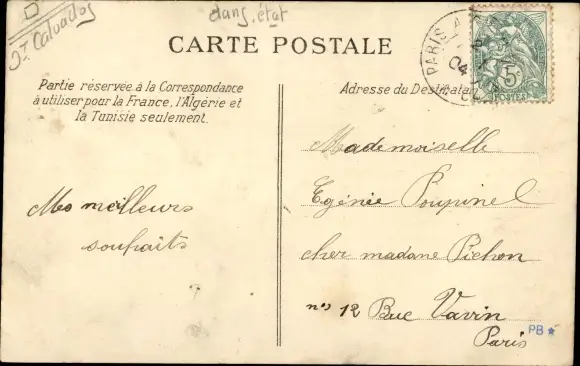 Dt Calvados
dans. état
CARTE POSTALE
Partie réservée à la Correspondance
à utiliser pour la France, l'Algérie et
la Tunisie seulement.
Adresse du Destinata
PARIS
04
5c
POSTES
Mes meilleurs
souhaits
Mademoiselle
Egénie Poupinel
cher madane Pichon
no 12 Rue Vavin
Paris
PB